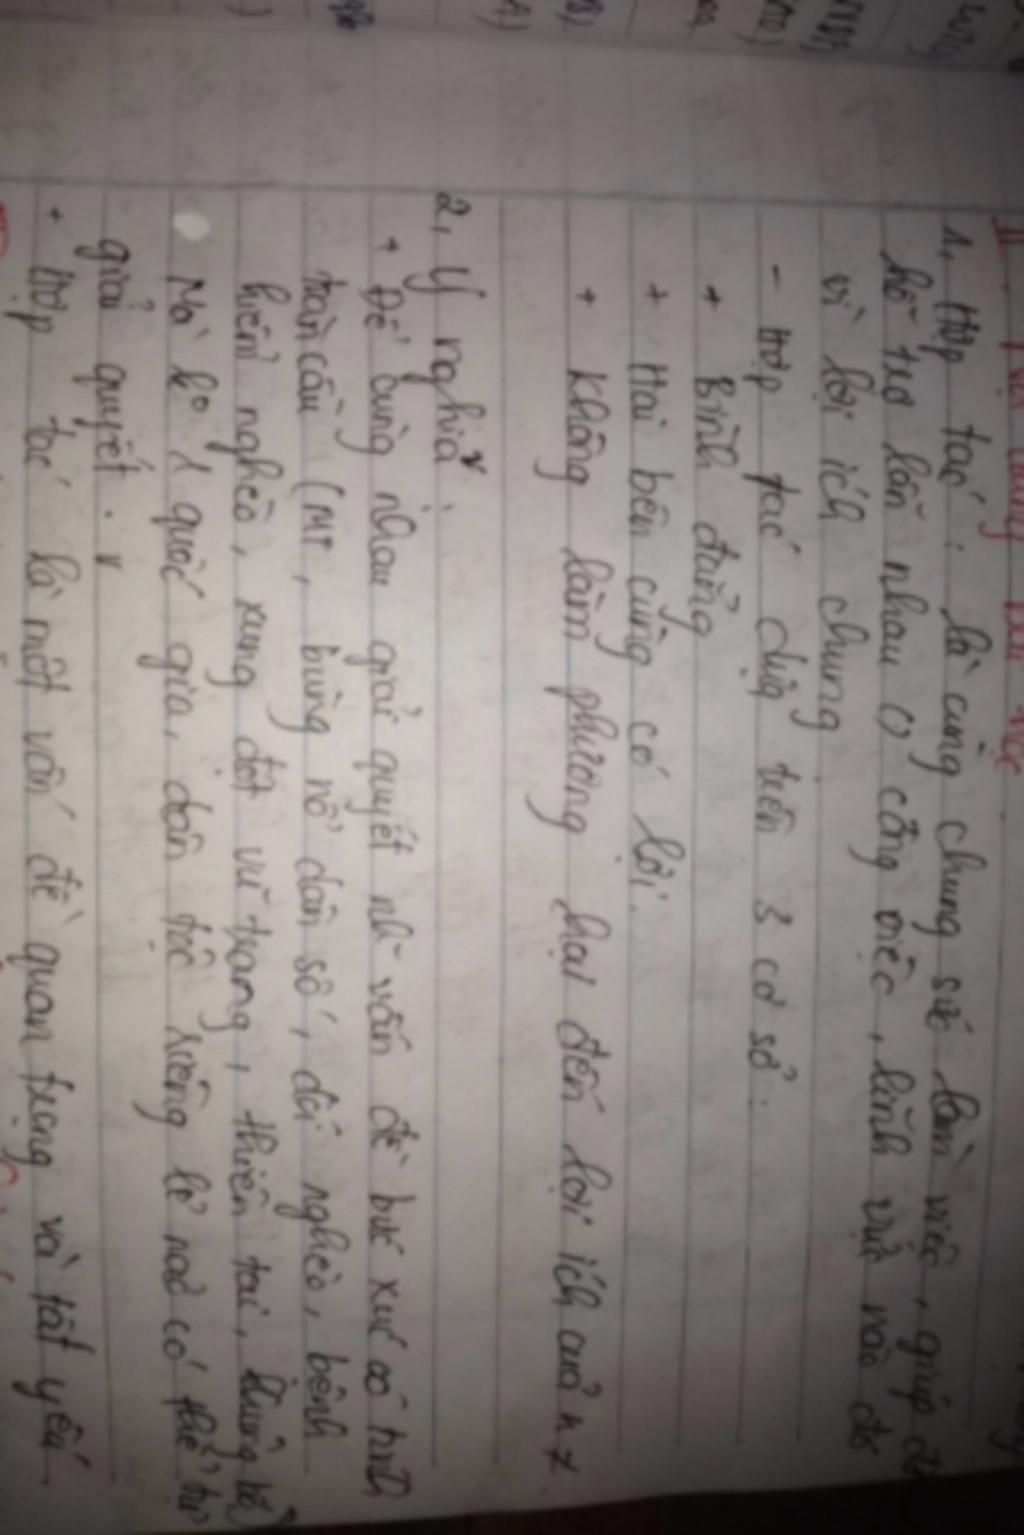 II
1, Hợp tác : là cùng chung sức làm việc, giúp đỡ
hỗ trợ lẫn nhau công việc, lĩnh vực nào đó
vì lợi ích chung
- Hợp tác dựa trên 3 cơ sở :
+ Bình đẳng
+ Hai bên cùng có lợi.
+ Không làm phương hại đến lợi ích của n ≠.
2, Ý nghĩa :
+ Để cùng nhau giải quyết nh~ vấn đề bức xúc có tính
toàn cầu (MT, bùng nổ dân số, đói nghèo, bệnh
hiểm nghèo, xung đột vũ trang, thiên tai, khủng bố)
Mà ko 1 quốc gia, dân tộc riêng lẻ nào có thể tự
giải quyết.
+ Hợp tác là một vấn đề quan trọng và tất yếu.